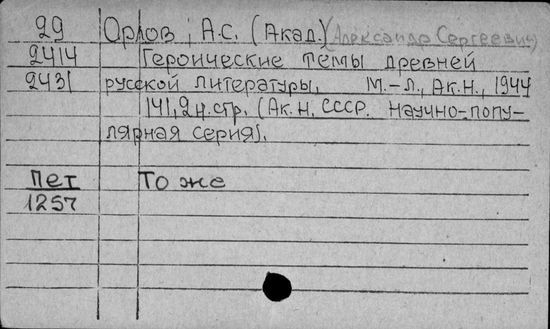 29 Орлов, А.С. (Акад.) (Александр Сергеевич)
2414 Героические темы древней
2431 русской литературы. М.-Л., Ак.н., 1944
141,2н.стр. (Ак.н. СССР. Научно-попу-
лярная серия).
Пет То же
1257